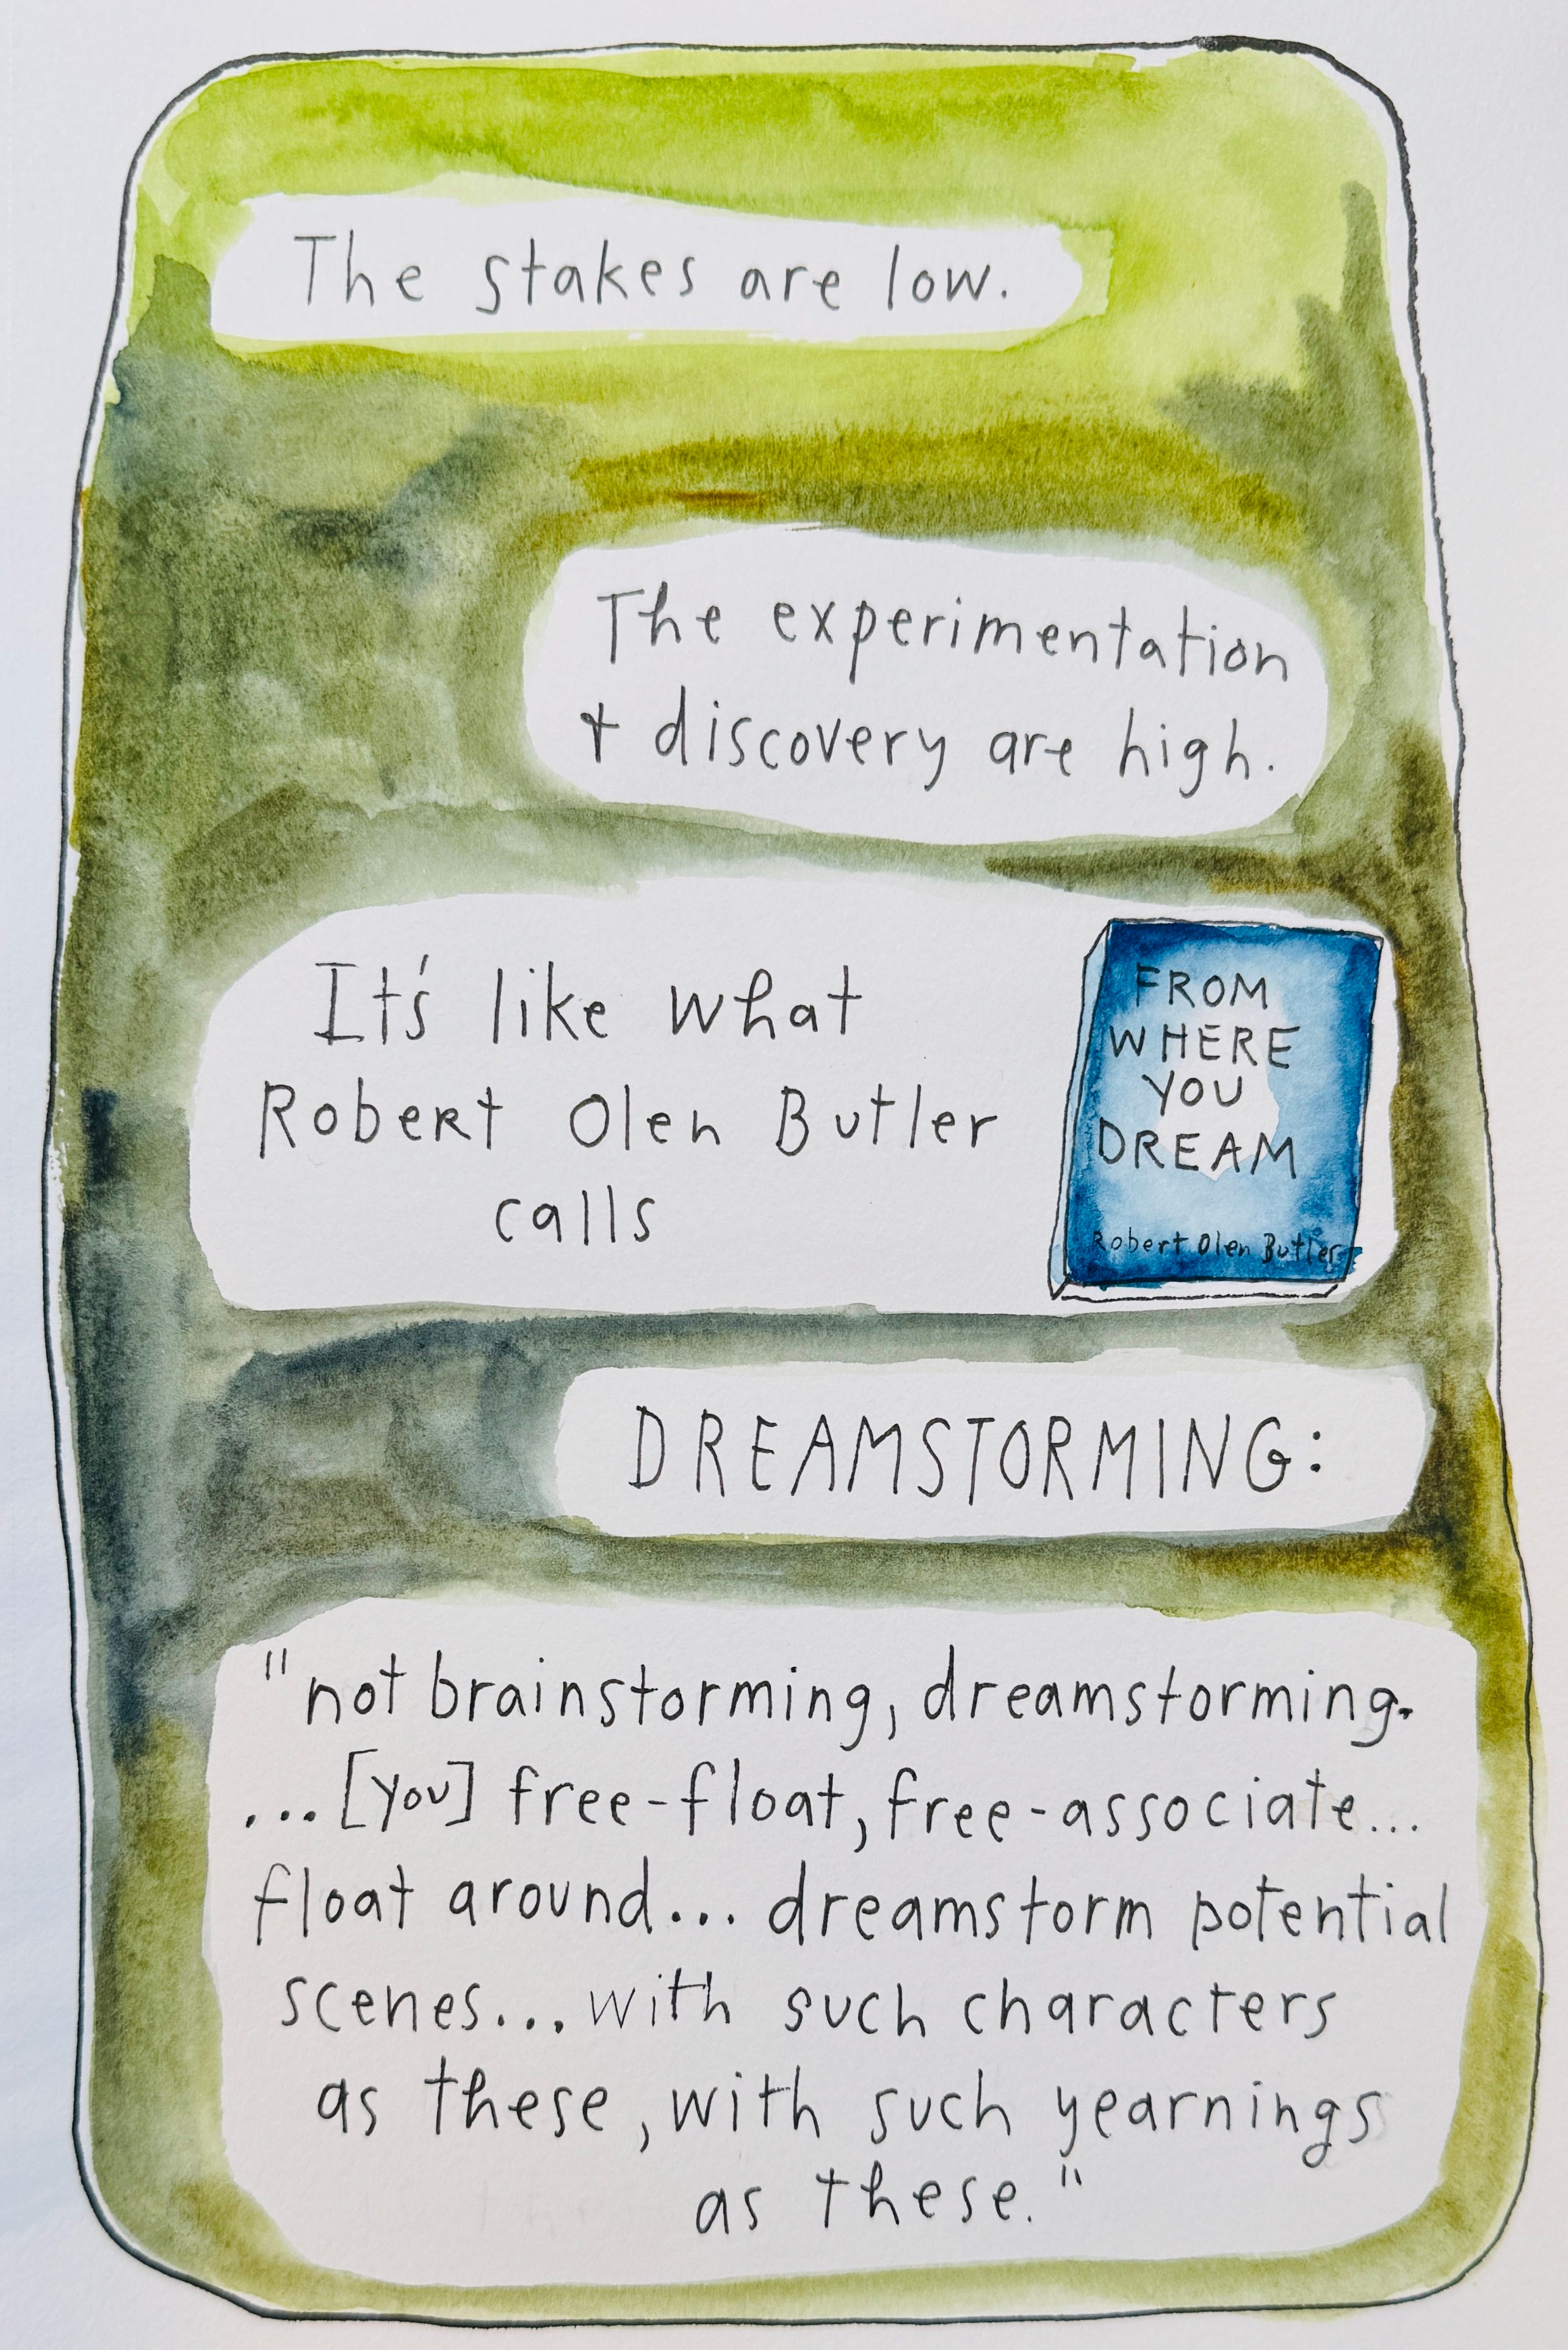 The stakes are low.
The experimentation
+ discovery are high.
It's like what
Robert Olen Butler
calls
FROM
WHERE
YOU
DREAM
Robert Olen Butler
DREAMSTORMING:
"not brainstorming, dreamstorming.
...[you] free-float, free-associate...
float around... dreamstorm potential
scenes...with such characters
as these, with such yearnings
as these."